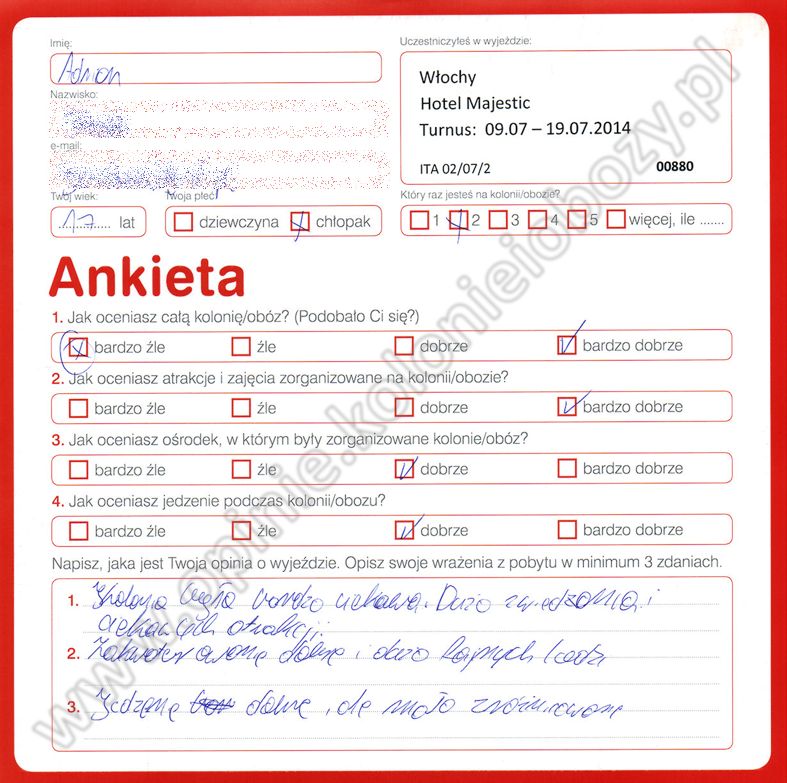 Imię:
Uczestniczyłeś w wyjeździe:
Adrian
Włochy
Hotel Majestic
Turnus: 09.07 – 19.07.2014
ITA 02/07/2 00880
Nazwisko:
e-mail:
Twój wiek:
Twoja płeć
Który raz jesteś na kolonii/obozie?
17 lat
dziewczyna chłopak
1 2 3 4 5 więcej, ile .......
Ankieta
1. Jak oceniasz całą kolonię/obóz? (Podobało Ci się?)
bardzo źle źle dobrze bardzo dobrze
2. Jak oceniasz atrakcje i zajęcia zorganizowane na kolonii/obozie?
bardzo źle źle dobrze bardzo dobrze
3. Jak oceniasz ośrodek, w którym były zorganizowane kolonie/obóz?
bardzo źle źle dobrze bardzo dobrze
4. Jak oceniasz jedzenie podczas kolonii/obozu?
bardzo źle źle dobrze bardzo dobrze
Napisz, jaka jest Twoja opinia o wyjeździe. Opisz swoje wrażenia z pobytu w minimum 3 zdaniach.
1. Kolonia była bardzo ciekawa. Dużo zwiedzania i
ciekawych atrakcji.
2. Zakwaterowanie dobre i dużo fajnych ludzi
3. Jedzenie dobre, ale mało zróżnicowane
www.opinie.kolonieiobozy.pl